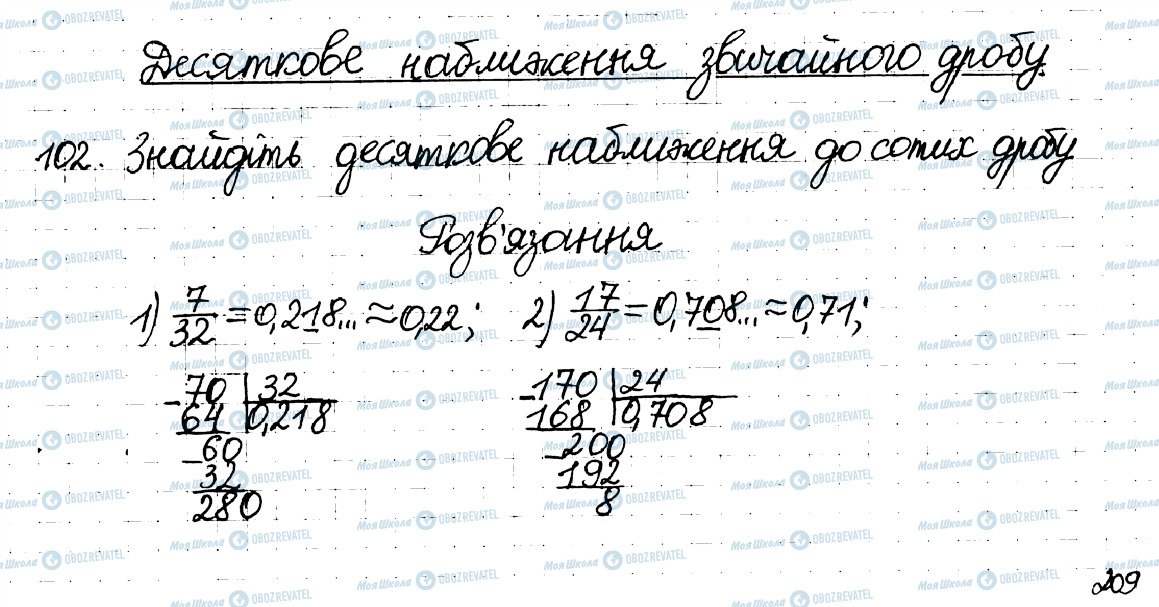 Десяткове наближення звичайного дробу
102. Знайдіть десяткове наближення до сотих дробу
Розв'язання
1) 7/32 = 0,218... ≈ 0,22; 2) 17/24 = 0,708... ≈ 0,71;
-70 | 32 -170 | 24
64 | 0,218 168 | 0,708
-60 -200
32 192
280 8
209
Моя Школа OBOZREVATEL